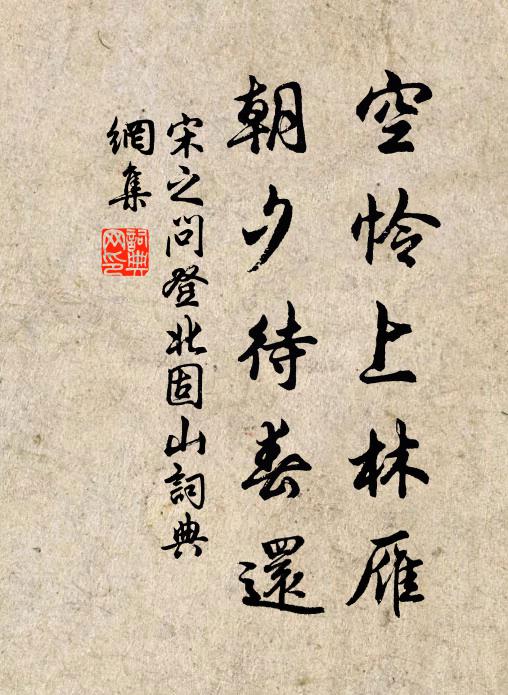 空怜上林雁
朝夕待春還
宋之问登北固山詞典
網集
詞典
网印